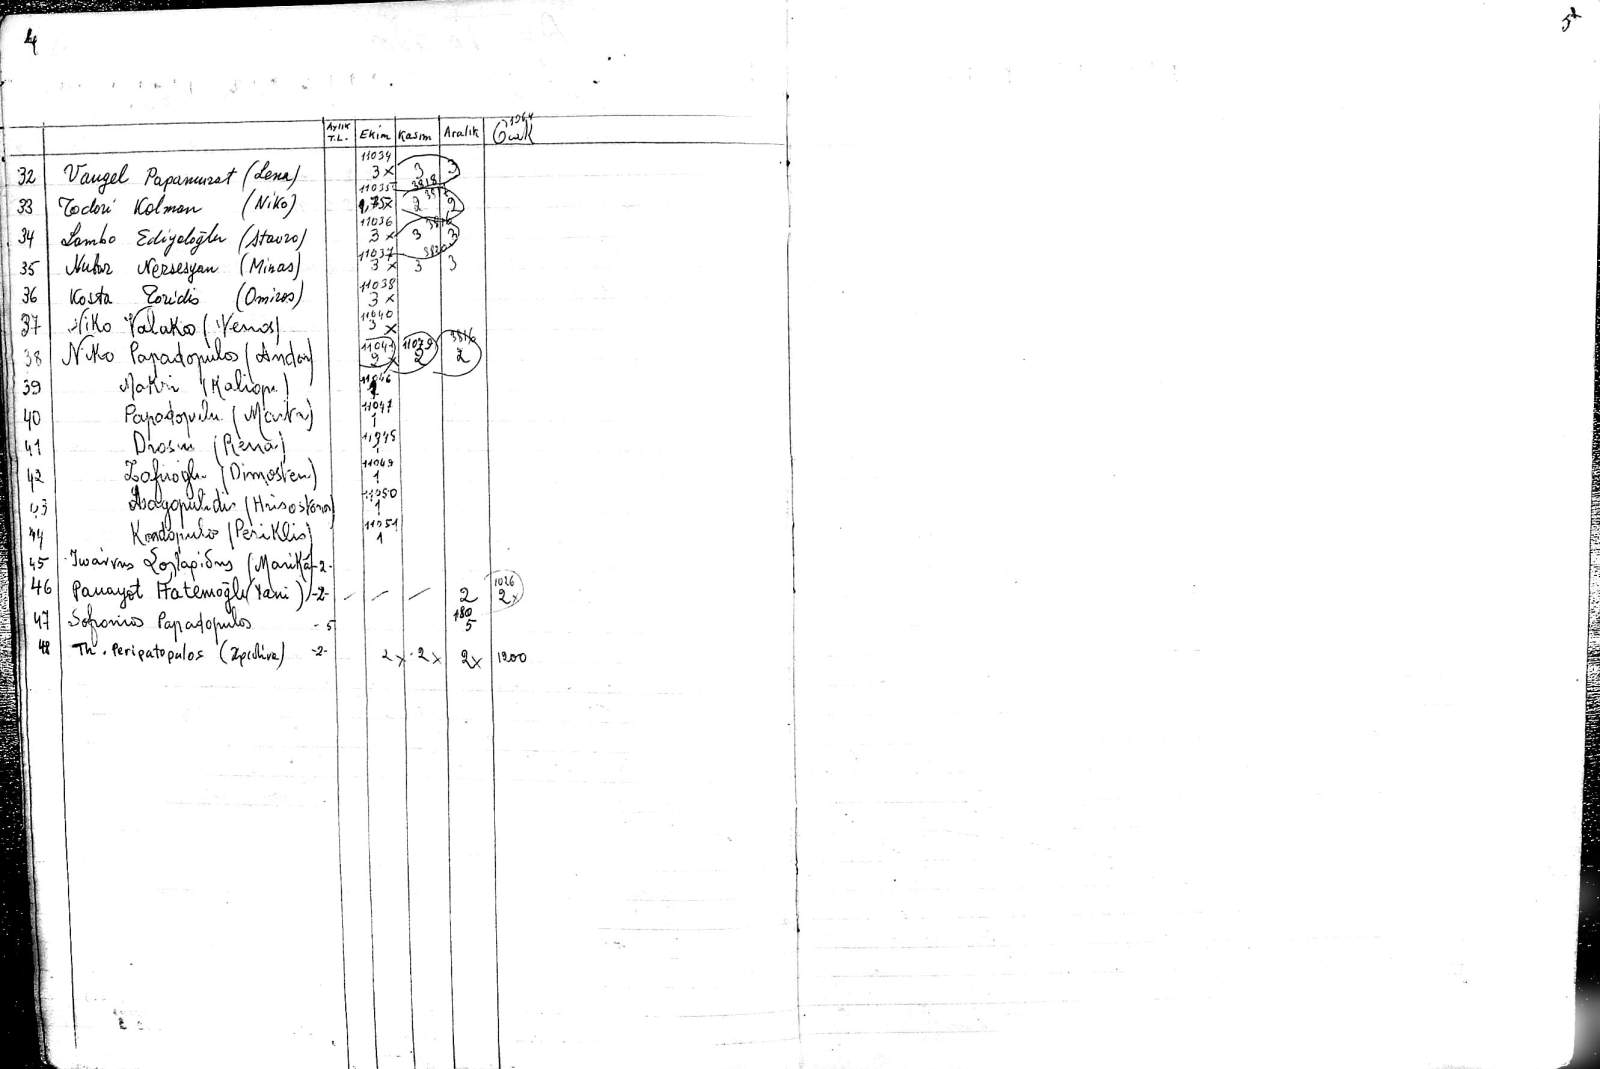 4
5
Aylık T.L. Ekim Kasım Aralık Ocak
11034
32 Vangel Papamurat (Lena) 3 x 3 3
11035 3818
33 Todori Kolman (Niko) 1,75x 2 2
11036
34 Lambo Ediyeloğlu (Stavro) 3 x 3 3
11037
35 Nubar Nersesyan (Minas) 3 x 3 3
11038
36 Kosta Toridis (Omiros) 3 x
11040
37 Niko Valakos (Venos) 3 x
11041 11079 3816
38 Niko Papadopulos (Andon) 2 x 2 2
11046
39 Makri (Kaliopi) 1
11047
40 Papadopulu (Marika) 1
41 Drosu (Rena) 1
11049
42 Zafiroğlu (Dimosten) 1
11050
43 (Hrisostomos) 1
11051
44 Kondopulos (Periklis) 1
45 (Marika) -2-
1026
46 Panayot Hatemoğlu (Yani) -2- 2 2x
180
47 Sofronios Papadopulos - 5 5
48 Th. Peripatopulos -2- 2x 2x 2x 1200